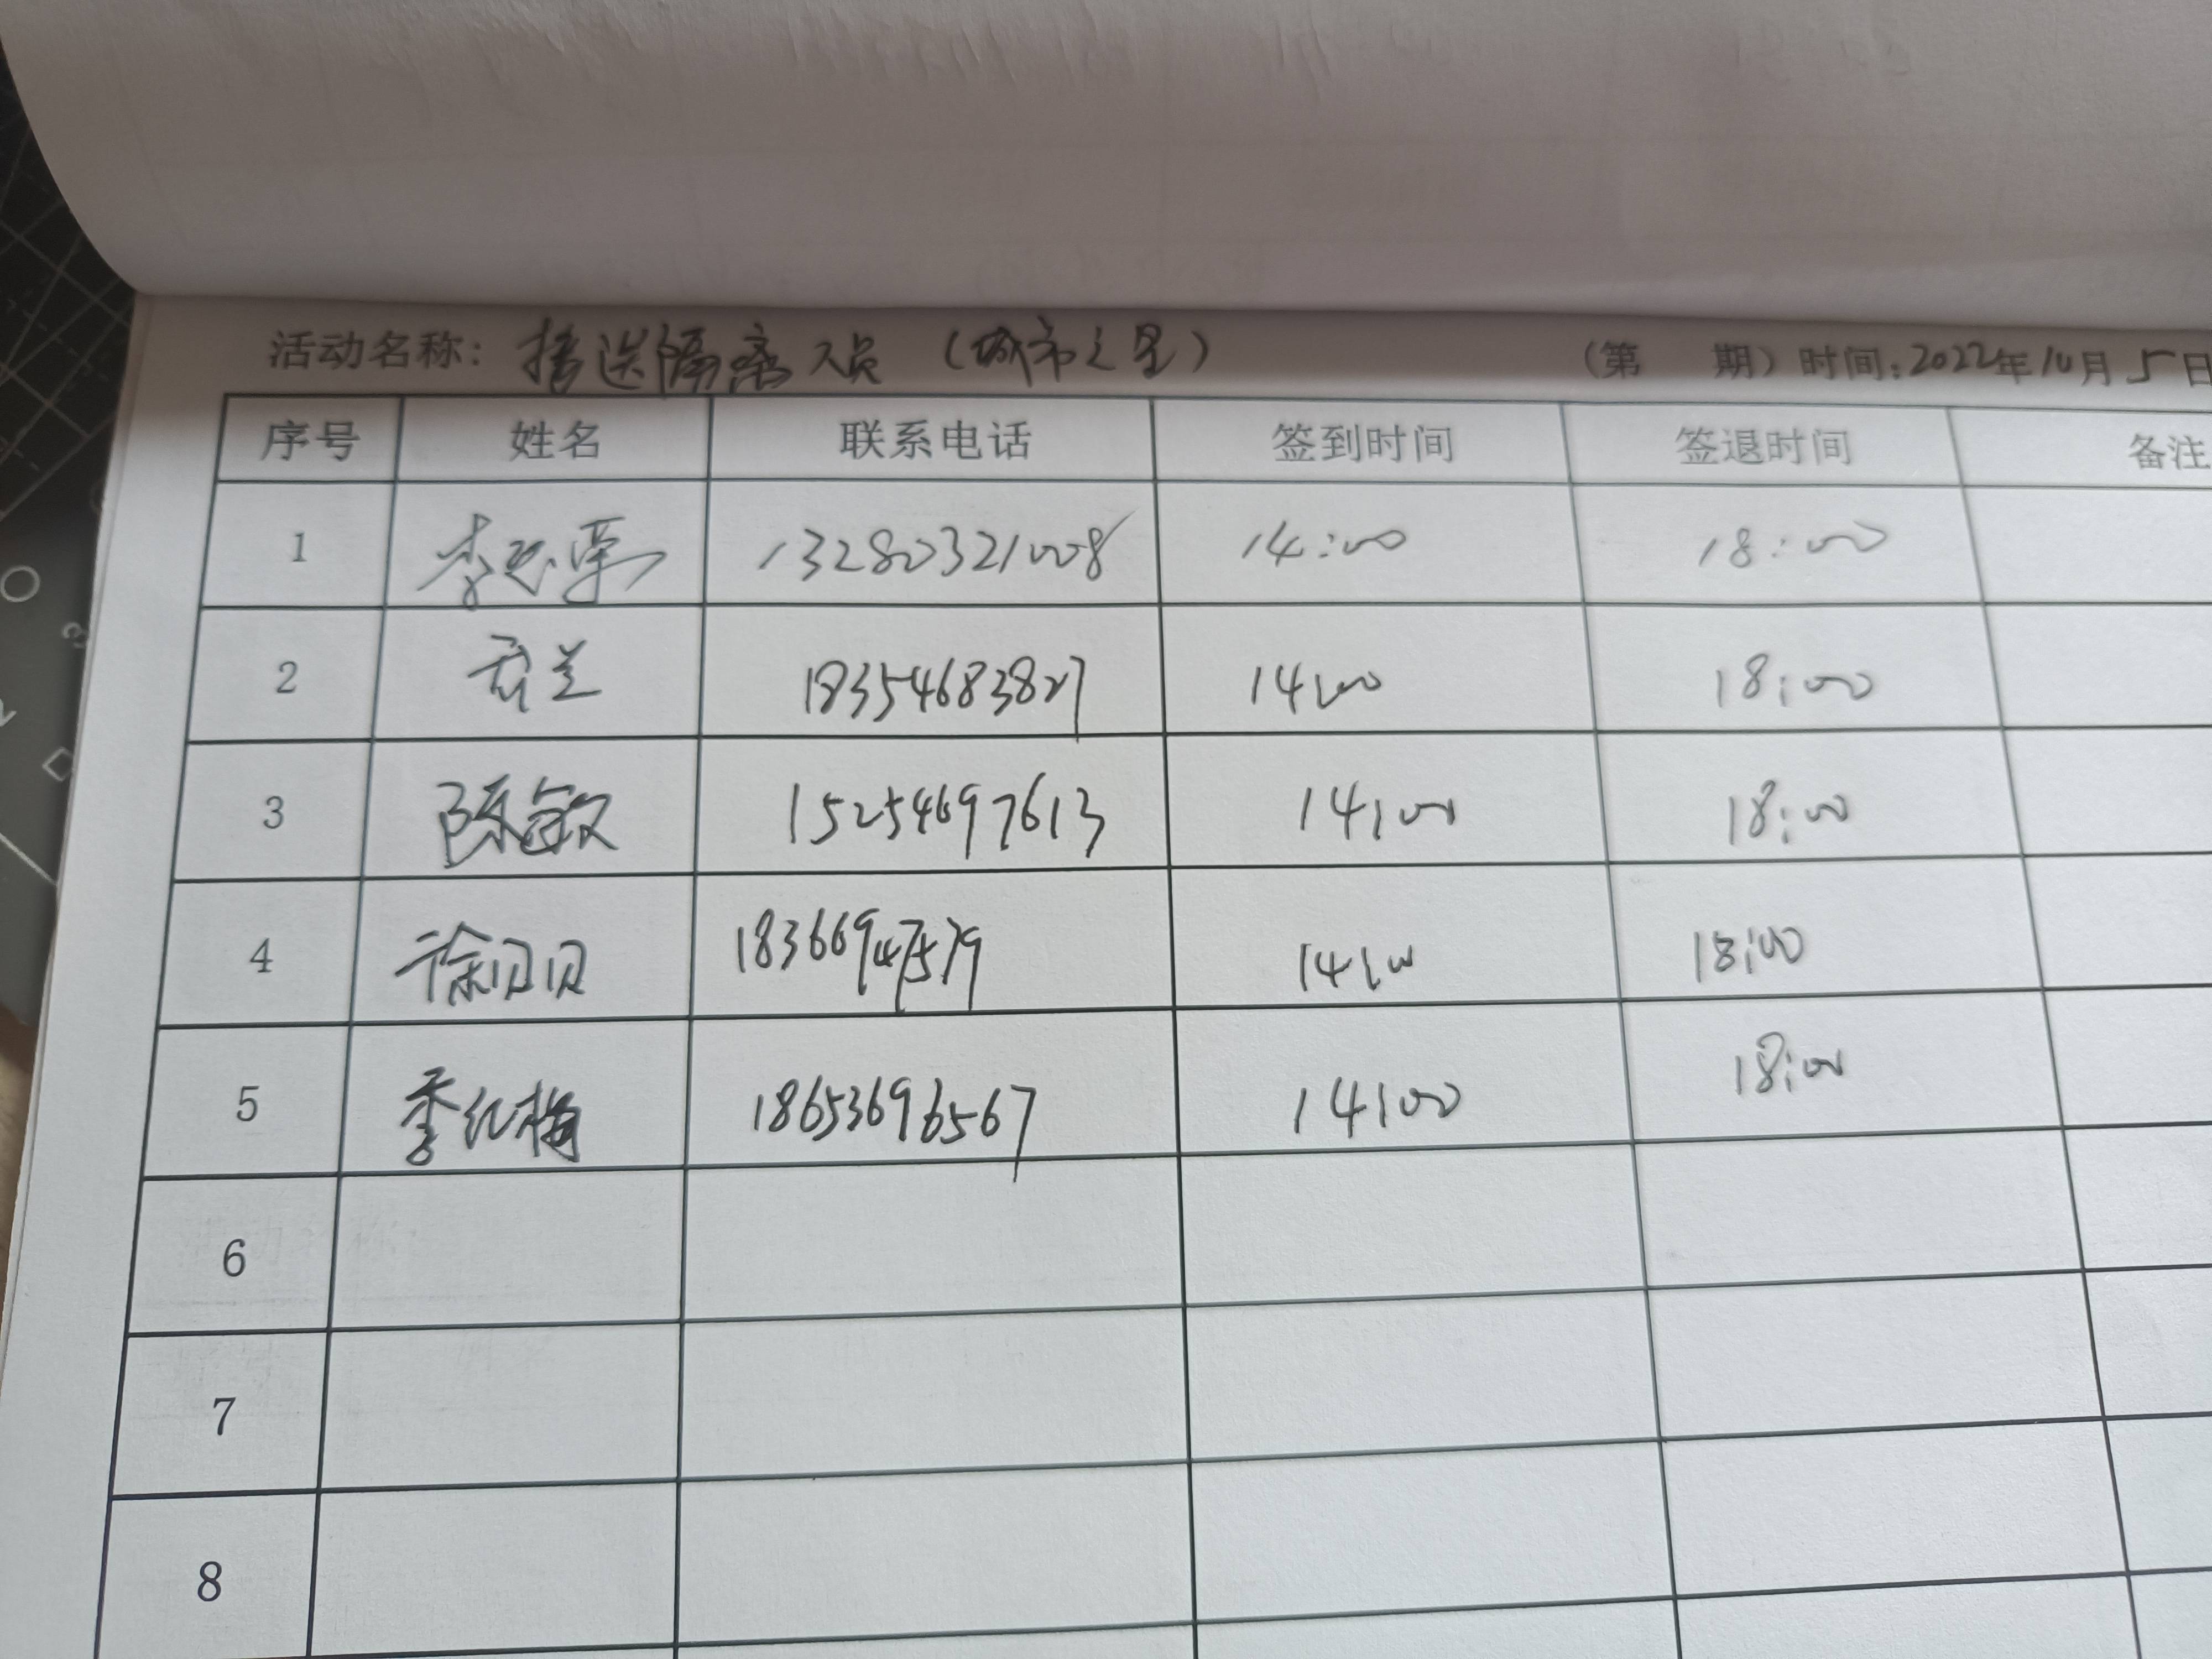 活动名称：接送隔离人员（城市之星） （第 期）时间：2022年10月5日
序号 姓名 联系电话 签到时间 签退时间 备注
1 13280321008 14:00 18:00
2 18354683827 14:00 18:00
3 陈敏 15254697613 14:00 18:00
4 徐贝贝 18366947579 14:00 18:00
5 季红梅 18653696567 14:00 18:00
6
7
8